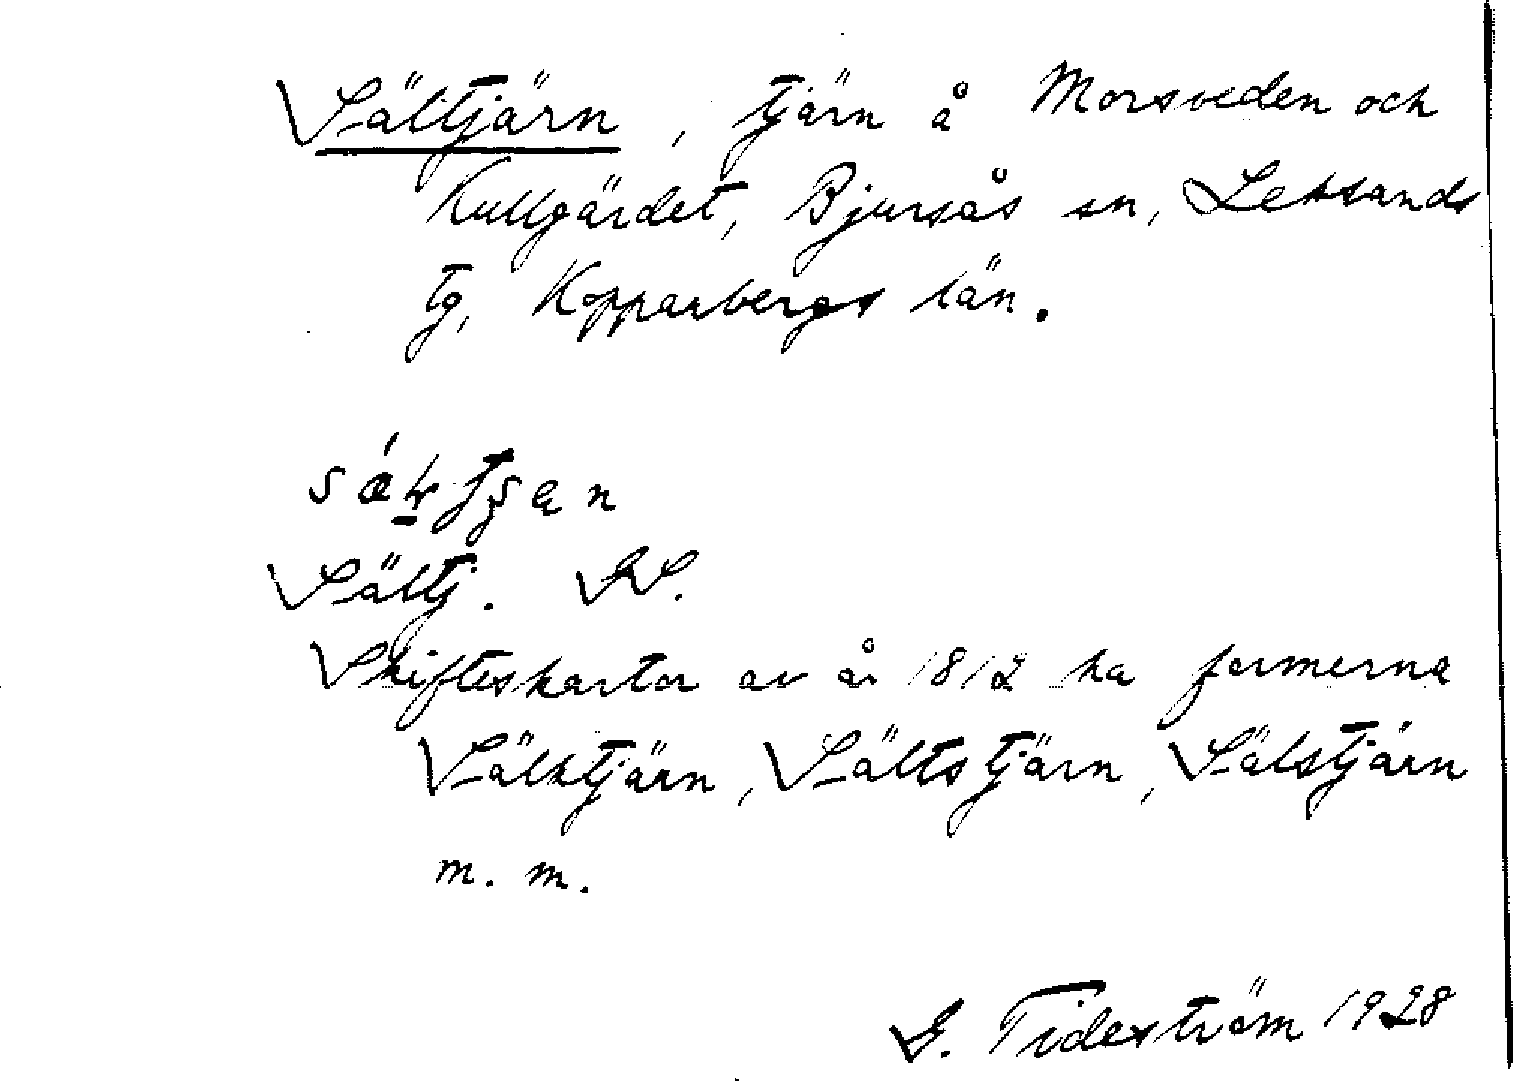 Sältjärn, tjärn å Morsveden och
Kullgärdet, Bjursås sn, Leksands
tg, Kopparbergs län.
Sältj. RS.
Skifteskartor av år 1812 ha formerna
Sälktjärn, Sältstjärn, Sälstjärn
m. m.
G. Tideström 1928